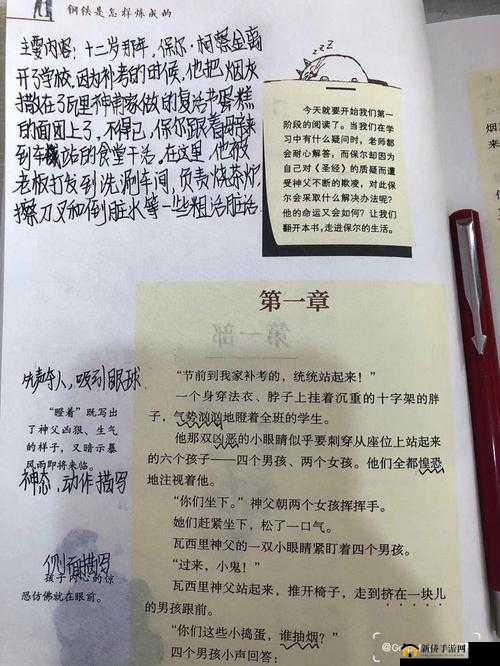 钢铁是怎样炼成的
主要内容：十二岁那年，保尔·柯察金离
开了学校，因为补考的时候，他把烟灰
撒在了瓦里神甫家做的复活节蛋糕
的面团上了。不得已，保尔跟着哥哥来
到车站的食堂干活。在这里，他被
老板打发到洗涮车间，负责烧茶炉，
擦刀叉和倒脏水等一些粗活脏活
今天就要开始我们第一
阶段的阅读了。当我们在学
习中有什么疑问时，老师都
会耐心解答，而保尔却因为
自己对《圣经》的质疑而遭
受神父不断的欺凌，对此保
尔会采取什么解决办法呢？
他的命运又会如何？让我们
翻开本书，走进保尔的生活。
第一章
先声夺人，吸引眼球
“瞪着”既写出
了神父凶狠、生气
的样子，又暗示暴
风雨即将来临。
神态，动作描写
侧面描写
孩子们的惊
恐仿佛就在眼前。
“节前到我家补考的，统统站起来！”
一个身穿法衣、脖子上挂着沉重的十字架的胖
子，气势汹汹地瞪着全班的学生。
他那双凶恶的小眼睛似乎要刺穿从座位上站起来
的六个孩子——四个男孩、两个女孩。他们全都惶恐
地注视着他。
“你们坐下。”神父朝两个女孩挥挥手。
她们赶紧坐下，松了一口气。
瓦西里神父的一双小眼睛紧盯着四个男孩。
“过来，小鬼！”
瓦西里神父站起来，推开椅子，走到挤在一块儿
的男孩跟前。
“你们这些小捣蛋，谁抽烟？”
四个男孩小声回答：
新侨手游网